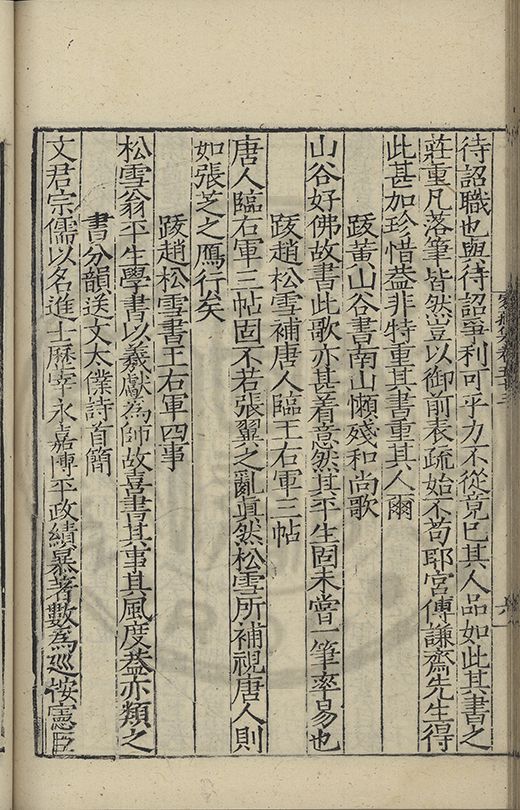 待詔職也與待詔爭利可乎力不從竟已其人品如此其書之
莊重凡落筆皆然豈以御前表疏始不苟耶宮傅謙齋先生得
此甚加珍惜葢非特重其書重其人爾
跋黃山谷書南山懶殘和尚歌
山谷好佛故書此歌亦甚着意然其平生固未嘗一筆率易也
跋趙松雪補唐人臨王右軍三帖
唐人臨右軍三帖固不若張翼之亂眞然松雪所補視唐人則
如張芝之鴈行矣
跋趙松雪書王右軍四事
松雪翁平生學書以羲獻為師故喜書其事其風度葢亦類之
書分韻送文太僕詩首簡
文君宗儒以名進士歷宰永嘉博平政績㬥著數為巡按憲臣